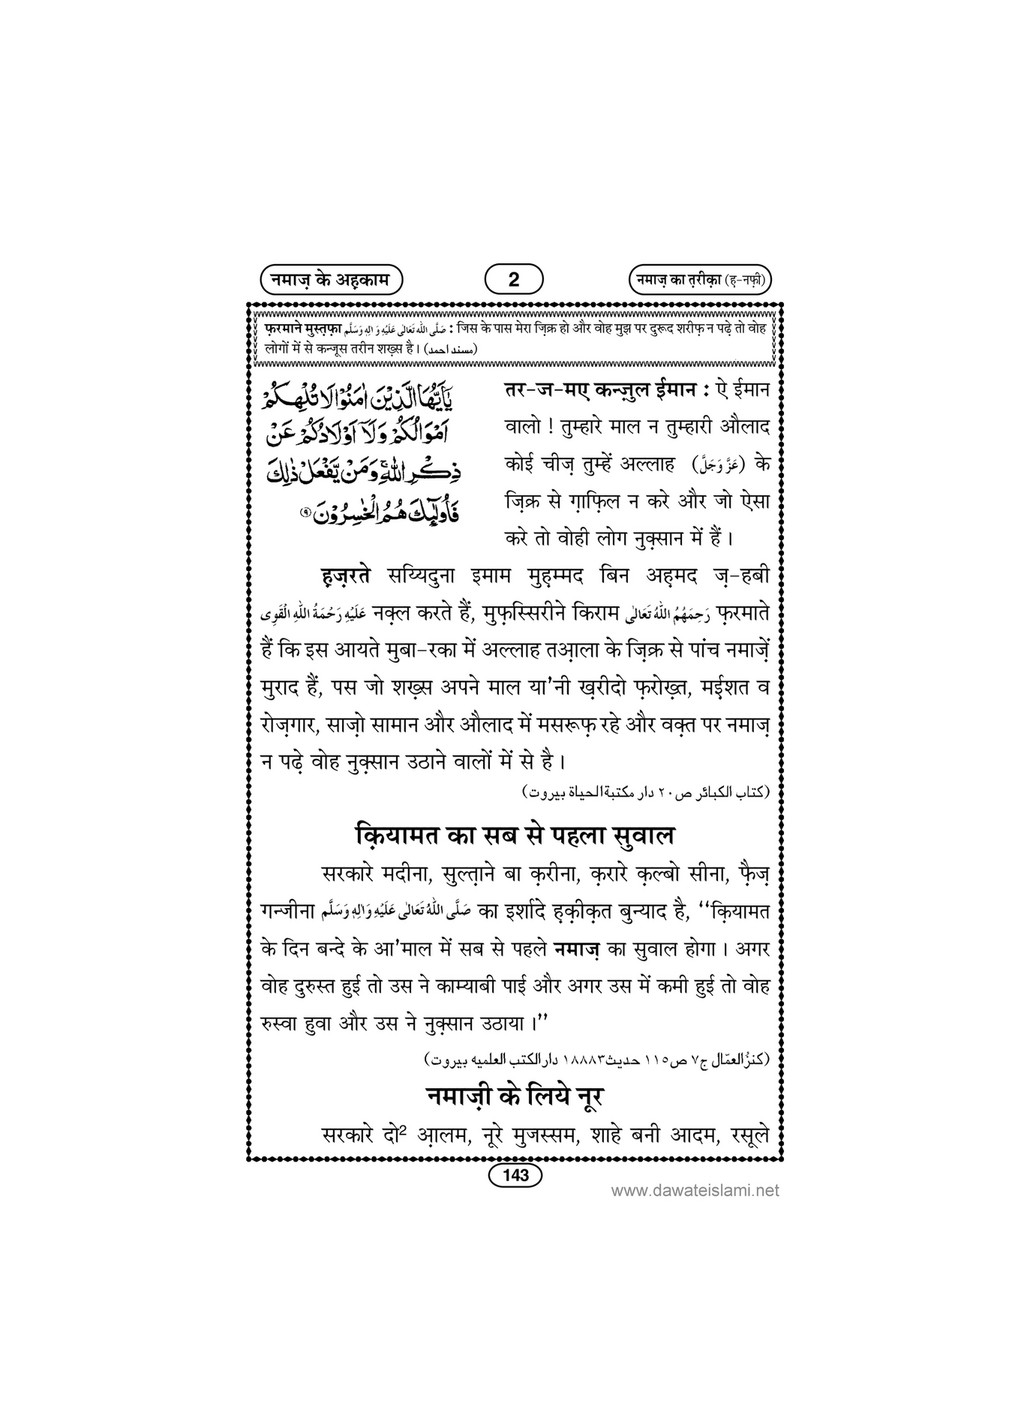 नमाज़ के अह़काम
2
नमाज़ का त़रीक़ा (ह़-नफ़ी)
फ़रमाने मुस्त़फ़ा صَلَّى اللهُ تَعَالٰى عَلَيْهِ وَاٰلِهٖ وَسَلَّم : जिस के पास मेरा ज़िक्र हो और वोह मुझ पर दुरूद शरीफ़ न पढ़े तो वोह
लोगों में से कन्जूस तरीन शख़्स है। (مسند احمد)
يٰۤاَيُّهَا الَّذِيْنَ اٰمَنُوْا لَا تُلْهِكُمْ
اَمْوَالُكُمْ وَلَاۤ اَوْلَادُكُمْ عَنْ
ذِكْرِ اللّٰهِۚ وَمَنْ يَّفْعَلْ ذٰلِكَ
فَاُولٰٓئِكَ هُمُ الْخٰسِرُوْنَ ﴿۹﴾
तर-ज-मए कन्ज़ुल ईमान : ऐ ईमान
वालो ! तुम्हारे माल न तुम्हारी औलाद
कोई चीज़ तुम्हें अल्लाह (عَزَّوَجَلَّ) के
ज़िक्र से ग़ाफ़िल न करे और जो ऐसा
करे तो वोही लोग नुक़्सान में हैं।
ह़ज़रते सय्यिदुना इमाम मुह़म्मद बिन अह़मद ज़-हबी
عَلَيْهِ رَحْمَةُ اللهِ الْقَوِى नक़्ल करते हैं, मुफ़स्सिरीने किराम رَحِمَهُمُ اللهُ تَعَالٰى फ़रमाते
हैं कि इस आयते मुबा-रका में अल्लाह तआ़ला के ज़िक्र से पांच नमाज़ें
मुराद हैं, पस जो शख़्स अपने माल या'नी ख़रीदो फ़रोख़्त, मई़शत व
रोज़गार, साज़ो सामान और औलाद में मसरूफ़ रहे और वक़्त पर नमाज़
न पढ़े वोह नुक़्सान उठाने वालों में से है।
(كتاب الكبائر ص٢٠ دار مكتبة الحياة بيروت)
क़ियामत का सब से पहला सुवाल
सरकारे मदीना, सुल्त़ाने बा क़रीना, क़रारे क़ल्बो सीना, फ़ैज़
गन्जीना صَلَّى اللهُ تَعَالٰى عَلَيْهِ وَاٰلِهٖ وَسَلَّم का इर्शादे ह़क़ीक़त बुन्याद है, ‘‘क़ियामत
के दिन बन्दे के आ'माल में सब से पहले नमाज़ का सुवाल होगा। अगर
वोह दुरुस्त हुई तो उस ने काम्याबी पाई और अगर उस में कमी हुई तो वोह
रुस्वा हुवा और उस ने नुक़्सान उठाया।’’
(كنز العمّال ج٧ ص١١٥ حديث١٨٨٨٣ دار الكتب العلميه بيروت)
नमाज़ी के लिये नूर
सरकारे दो2 आ़लम, नूरे मुजस्सम, शाहे बनी आदम, रसूले
143
www.dawateislami.net